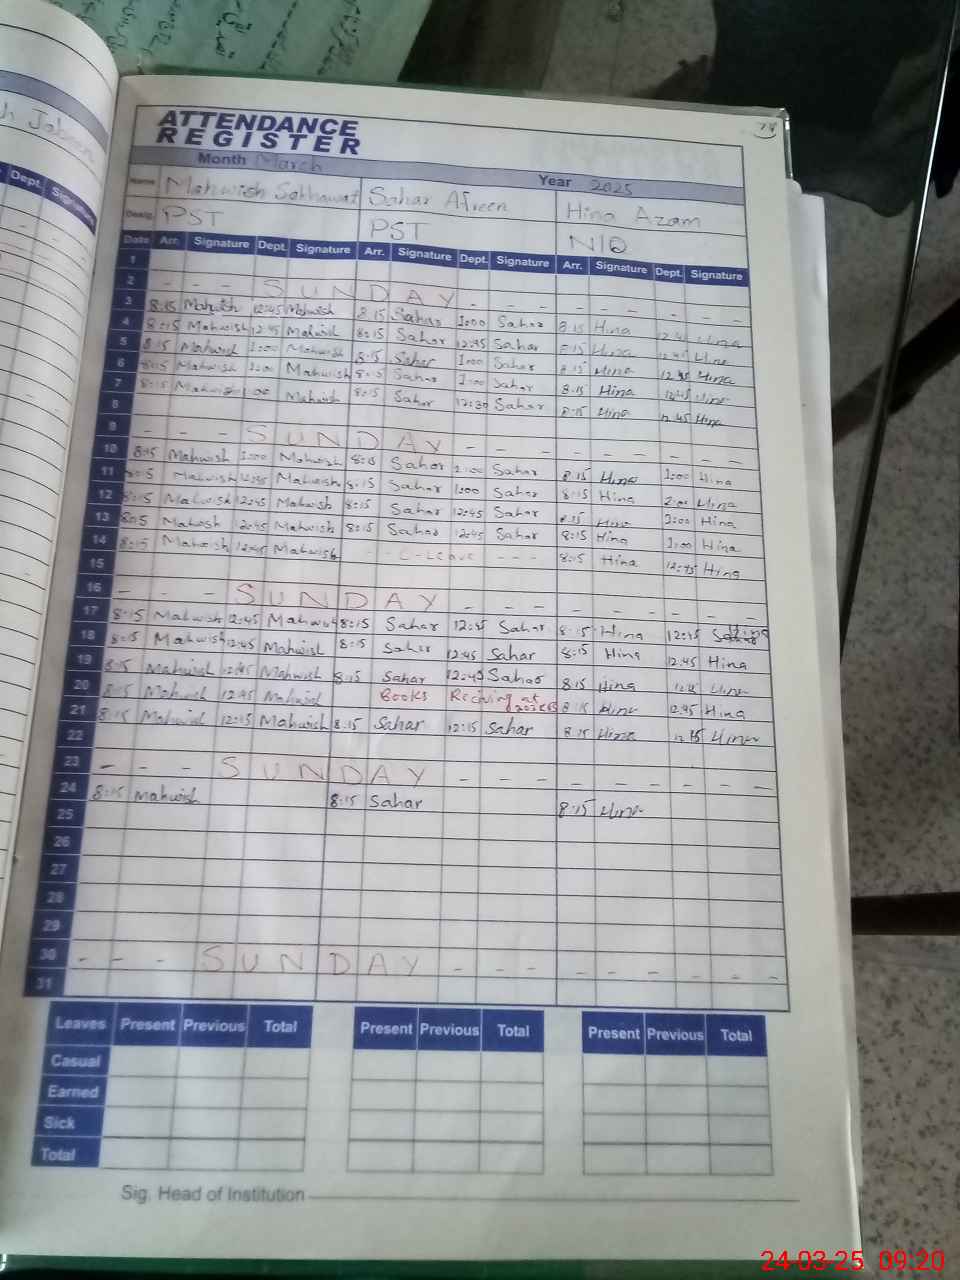 ATTENDANCE
REGISTER
Month March Year 2025
Name Mahwish Sakhawat Sahar Afreen Hina Azam
Desig. PST PST N/Q
Date Arr. Signature Dept. Signature Arr. Signature Dept. Signature Arr. Signature Dept. Signature
1
2 - - - SUNDAY - - - - - - - -
3 8:15 Mahwish 12:45 Mahwish 8:15 Sahar 1:00 Sahar 8:15 Hina 12:45 Hina
4 8:15 Mahwish 12:45 Mahwish 8:15 Sahar 12:45 Sahar 8:15 Hina 12:45 Hina
5 8:15 Mahwish 1:00 Mahwish 8:15 Sahar 1:00 Sahar 8:15 Hina 12:45 Hina
6 8:15 Mahwish 1:00 Mahwish 8:15 Sahar 1:00 Sahar 8:15 Hina 12:45 Hina
7 8:15 Mahwish 1:00 Mahwish 8:15 Sahar 12:30 Sahar 8:15 Hina 12:45 Hina
8
9 - - - SUNDAY - - - - - - - -
10 8:15 Mahwish 1:00 Mahwish 8:15 Sahar 1:00 Sahar 8:15 Hina 1:00 Hina
11 8:15 Mahwish 12:45 Mahwish 8:15 Sahar 1:00 Sahar 8:15 Hina Hina
12 8:15 Mahwish 12:45 Mahwish 8:15 Sahar 12:45 Sahar 8:15 Hina 1:00 Hina
13 8:15 Mahwish 12:45 Mahwish 8:15 Sahar 12:45 Sahar 8:15 Hina 1:00 Hina
14 8:15 Mahwish 12:45 Mahwish - - C-Leave - - - 8:15 Hina 12:45 Hina
15
16 - - - SUNDAY - - - - - - - -
17 8:15 Mahwish 12:45 Mahwish 8:15 Sahar 12:45 Sahar 8:15 Hina 12:45 Hina
18 8:15 Mahwish 12:45 Mahwish 8:15 Sahar 12:45 Sahar 8:15 Hina 12:45 Hina
19 8:15 Mahwish 12:45 Mahwish 8:15 Sahar 12:45 Sahar 8:15 Hina 12:45 Hina
20 8:15 Mahwish 12:45 Mahwish Books Reciving at 8:15 Hina 12:45 Hina
21 8:15 Mahwish 12:15 Mahwish 8:15 Sahar 12:15 Sahar 8:15 Hina 12:15 Hina
22
23 - - - SUNDAY - - - - - - - - -
24 8:15 Mahwish 8:15 Sahar 8:15 Hina
25
26
27
28
29
30 - - - SUNDAY - - - - - - - - -
31
Leaves Present Previous Total Present Previous Total Present Previous Total
Casual
Earned
Sick
Total
Sig. Head of Institution
24-03-25 09:20